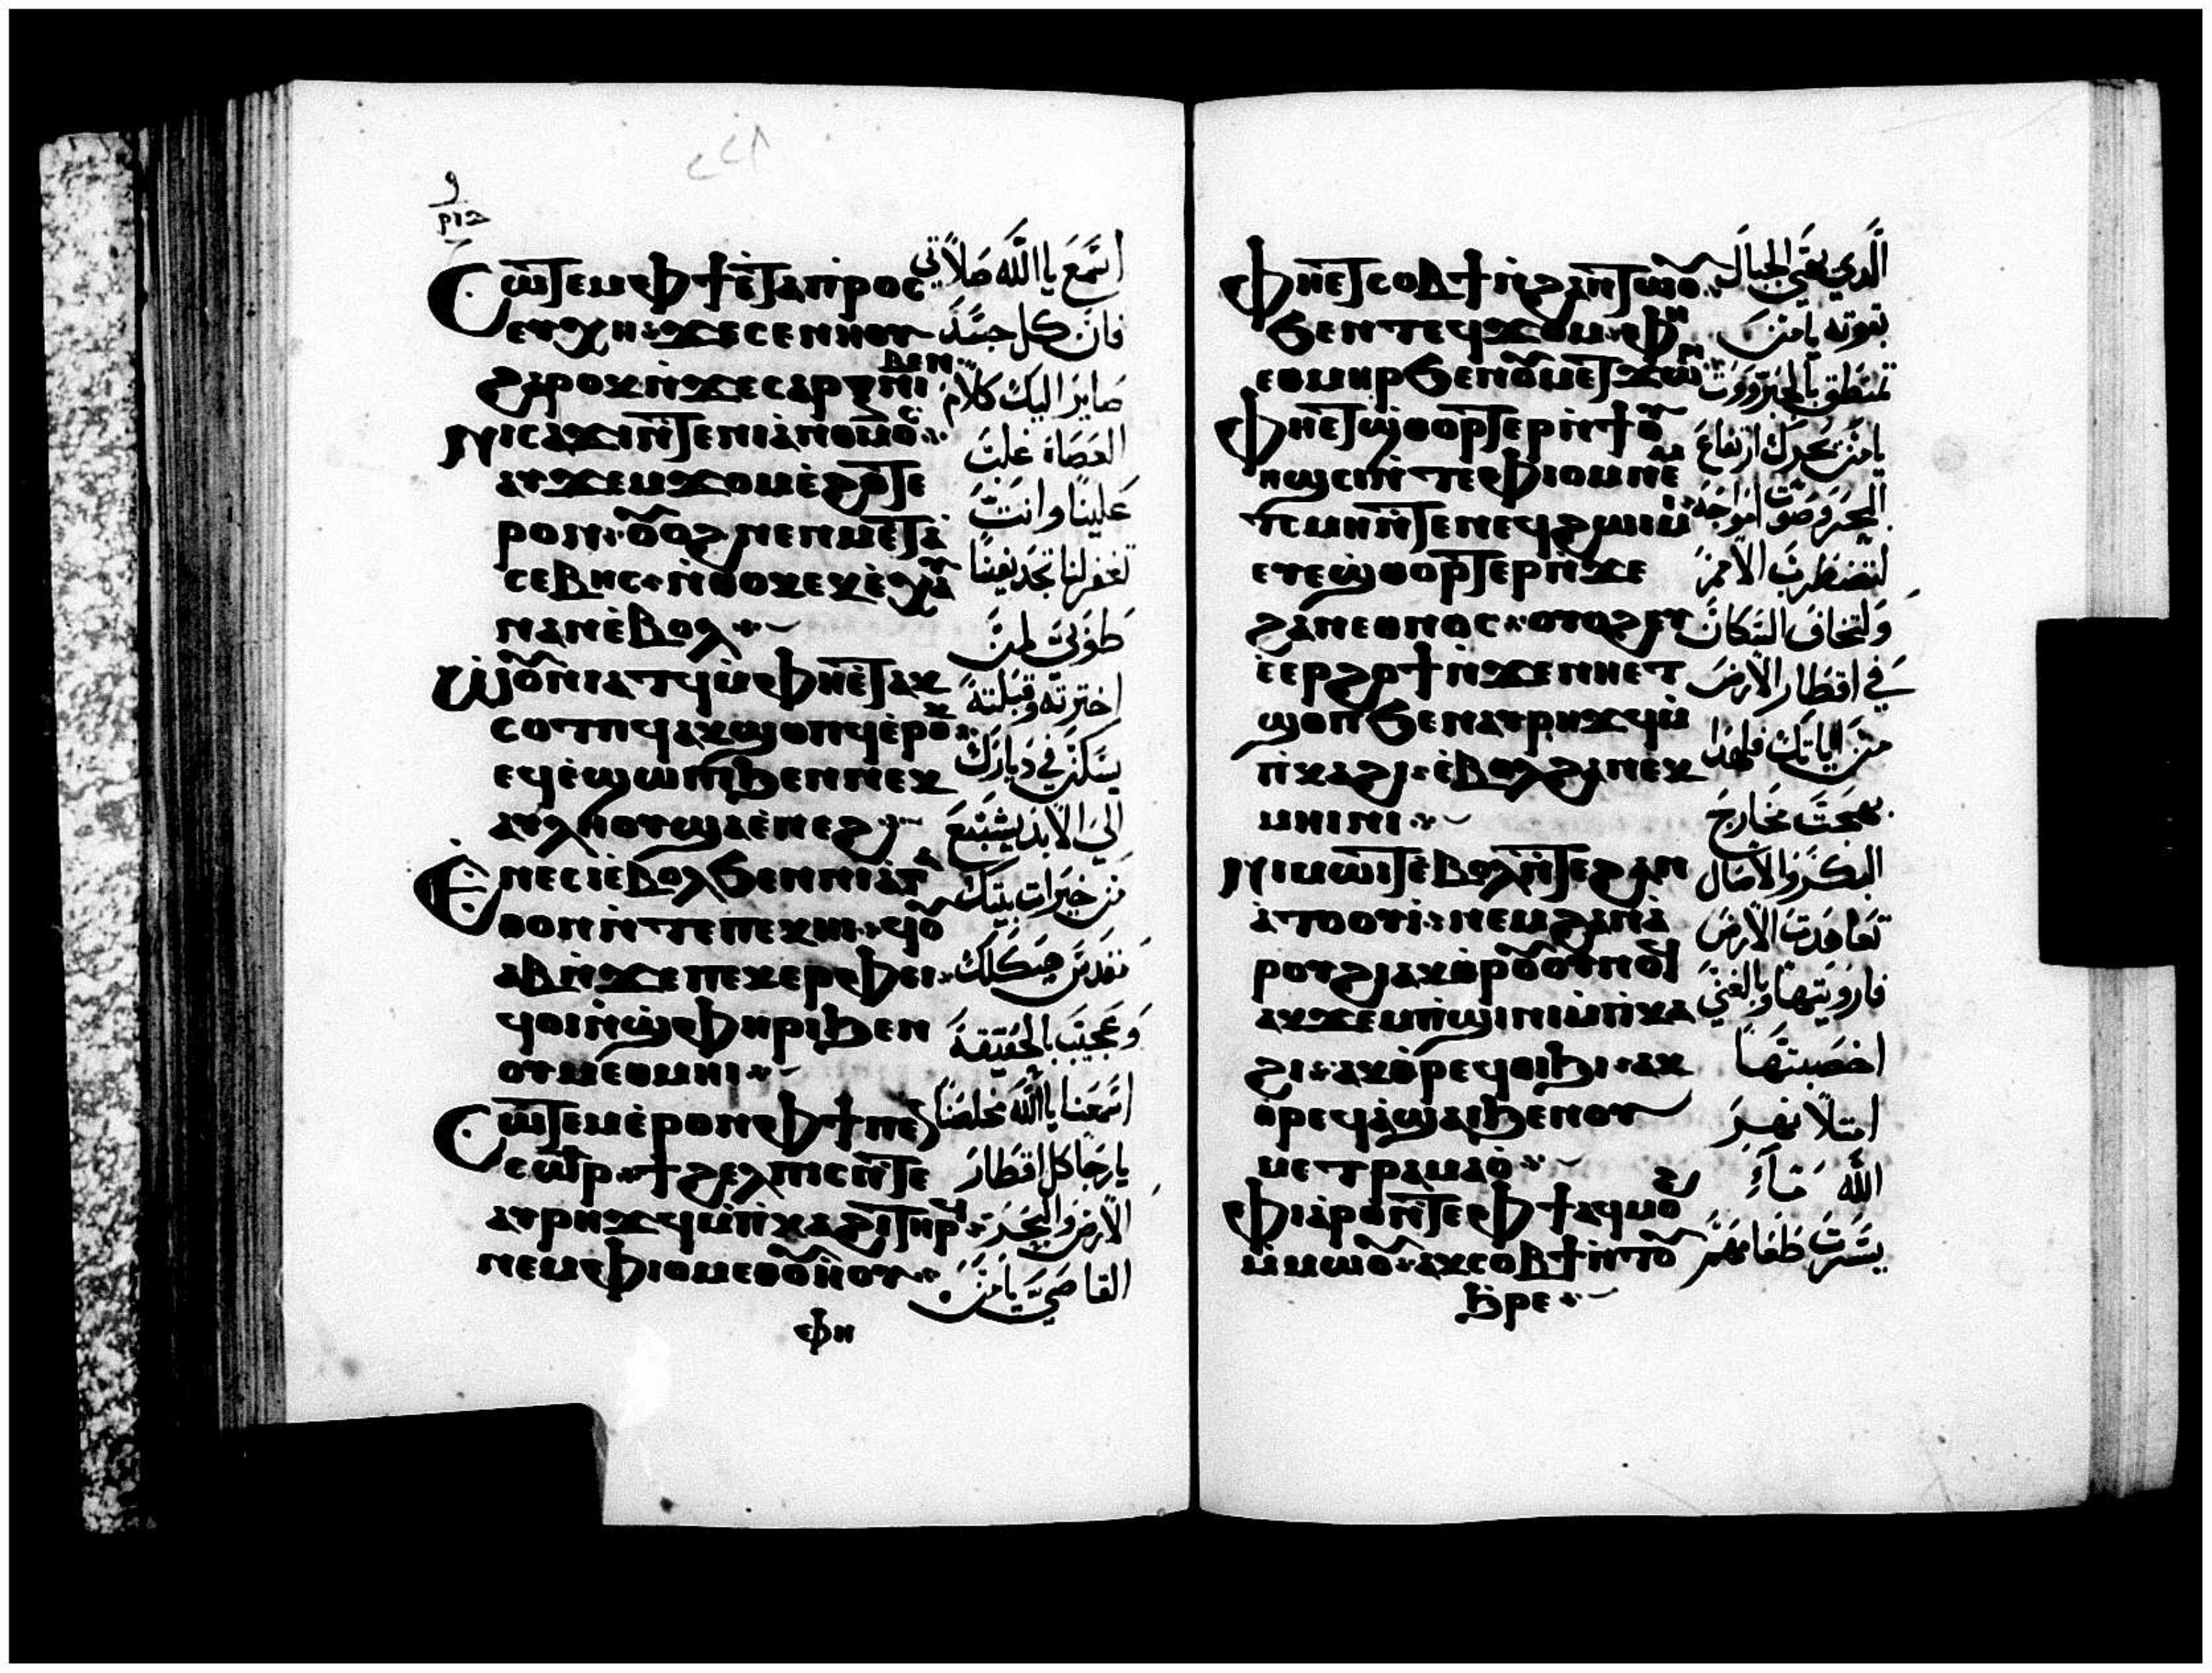 ⲥⲱⲧⲉⲙ ⲫϯ ⲉⲧⲁⲡⲣⲟⲥ
ⲉⲩⲭⲏ ϫⲉ ⲥⲉⲛⲛⲏⲟⲩ
ϩⲁⲣⲟⲕ ⲛϫⲉ ⲥⲁⲣⲝ ⲛⲓⲃⲉⲛ
ⲛⲓⲥⲁϫⲓ ⲛⲧⲉ ⲛⲓⲁⲛⲟⲙⲟⲥ
ⲁⲩϫⲉⲙϫⲟⲙ ⲉϩⲟⲧⲉ
ⲣⲟⲛ ⲟⲩⲟϩ ⲛⲉⲛⲙⲉⲧⲁ
ⲥⲉⲃⲏⲥ ⲛⲑⲟⲕ ⲉⲕⲉⲭⲁⲩ
ⲛⲁⲛ ⲉⲃⲟⲗ
ⲱⲟⲩⲛⲓⲁⲧϥ ⲙⲫⲏⲉⲧⲁⲕ
ⲥⲟⲧⲡϥ ⲁⲕϣⲟⲡϥ ⲉⲣⲟⲕ
ⲉϥⲉϣⲱⲡⲓ ϧⲉⲛ ⲛⲉⲕ
ⲁⲩⲗⲏⲟⲩ ϣⲁ ⲉⲛⲉϩ
ⲉⲛⲉⲥⲓ ⲉⲃⲟⲗ ϧⲉⲛ ⲛⲓⲁⲅⲁ
ⲑⲟⲛ ⲛⲧⲉ ⲡⲉⲕⲏⲓ ϥⲟⲩ
ⲁⲃ ⲛϫⲉ ⲡⲉⲕⲉⲣⲫⲉⲓ
ϥⲟⲓ ⲛϣⲫⲏⲣⲓ ϧⲉⲛ
ⲟⲩⲙⲉⲑⲙⲏⲓ
ⲥⲱⲧⲉⲙ ⲉⲣⲟⲛ ⲫϯ ⲡⲉⲛ
ⲥⲱⲣ ϯϩⲉⲗⲡⲓⲥ ⲛⲧⲉ
ⲁⲩⲣⲏϫϥ ⲙⲡⲕⲁϩⲓ ⲧⲏⲣϥ
ⲛⲉⲙ ⲫⲓⲟⲙ ⲉⲑⲟⲩⲏⲟⲩ
ⲫⲏ
استمع يا الله صلاتي
فان كل جسد
صاير اليك كلام
العصاة غلبت
علينا وانت
تغفر لنا تجديفنا
طوبى لمن
اخترته وقبلته
يسكن في ديارك
الي الابد يشبع
من خيرات بيتك
مقدس هيكلك
وعجيب بالحقيقة
استمعنا يا الله مخلصنا
يا رجا كل اقطار
الارض والبحر
القاصي يا من
ⲫⲏⲉⲧⲥⲟⲃϯ ⲛϩⲁⲛⲧⲱⲟⲩ
ϧⲉⲛ ⲧⲉϥϫⲟⲙ ⲫⲏ
ⲉⲑⲙⲏⲣ ϧⲉⲛ ⲟⲩⲙⲉⲧϫⲱⲣⲓ
ⲫⲏⲉⲧϣⲑⲟⲣⲧⲉⲣ ⲛϯⲟⲩ
ⲏϣⲥⲓ ⲛⲧⲉ ⲫⲓⲟⲙ ⲛⲉⲙ
ⲧⲥⲙⲏ ⲛⲧⲉ ⲛⲉϥϩⲱⲓⲙⲓ
ⲉⲩⲉϣⲑⲟⲣⲧⲉⲣ ⲛϫⲉ
ϩⲁⲛⲉⲑⲛⲟⲥ ⲟⲩⲟϩ ⲉⲩ
ⲉⲉⲣϩⲟϯ ⲛϫⲉ ⲛⲏⲉⲧ
ϣⲟⲡ ϧⲉⲛ ⲁⲩⲣⲏϫϥ ⲙ
ⲡⲕⲁϩⲓ ⲉⲃⲟⲗ ϩⲁ ⲛⲉⲕ
ⲙⲏⲓⲛⲓ
ⲛⲓⲙⲱⲓⲧ ⲉⲃⲟⲗ ⲛⲧⲉ ϩⲁⲛ
ⲁⲧⲟⲟⲩⲓ ⲛⲉⲙ ϩⲁⲛⲁ
ⲣⲟⲩϩⲓ ⲁⲕⲑⲣⲟⲩⲟⲩⲛⲟϥ
ⲁⲕϫⲉⲙⲡϣⲓⲛⲓ ⲙⲡⲕⲁ
ϩⲓ ⲁⲕⲑⲣⲉϥⲑⲓϧⲓ ⲁⲕ
ⲑⲣⲉϥⲁϣⲁⲓ ϧⲉⲛ ⲟⲩ
ⲙⲉⲧⲣⲁⲙⲁⲟ
ⲫⲓⲁⲣⲟ ⲛⲧⲉ ⲫϯ ⲁϥⲙⲟϩ
ⲙⲙⲱⲟⲩ ⲁⲕⲥⲟⲃϯ ⲛⲧⲟⲩ
ϧⲣⲉ
الذي يهيي الجبال
بقوته يا من
تمنطق بالجبروت
يا من يحرك ارتفاع
البحر وصوت امواجه
لتضطرب الامم
ولتخاف السكان
في اقطار الارض
من اياتك فلهذا
بهجت مخارج
البكر والاصال
تعاهدت الارض
فارويتها وبالغني
اخصبتها
امتلا نهر
الله ماء
يسرت طعامهم